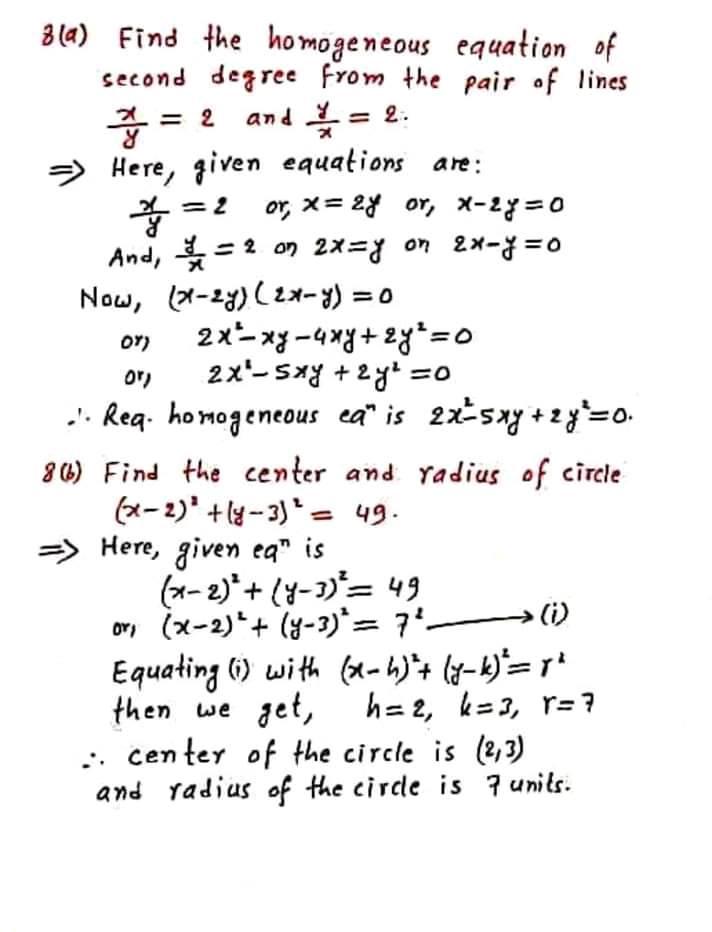 8(a) Find the homogeneous equation of
second degree from the pair of lines
x/y = 2 and y/x = 2.
=> Here, given equations are:
x/y = 2 or, x = 2y or, x-2y = 0
And, y/x = 2 or 2x = y or 2x-y = 0
Now, (x-2y)(2x-y) = 0
or, 2x²-xy-4xy+2y² = 0
or, 2x²-5xy+2y² = 0
∴ Req. homogeneous eqⁿ is 2x²-5xy+2y²=0.
8(b) Find the center and radius of circle
(x-2)²+(y-3)² = 49.
=> Here, given eqⁿ is
(x-2)²+(y-3)² = 49
or, (x-2)²+(y-3)² = 7² ⟶ (i)
Equating (i) with (x-h)²+(y-k)² = r²
then we get, h=2, k=3, r=7
∴ center of the circle is (2,3)
and radius of the circle is 7 units.